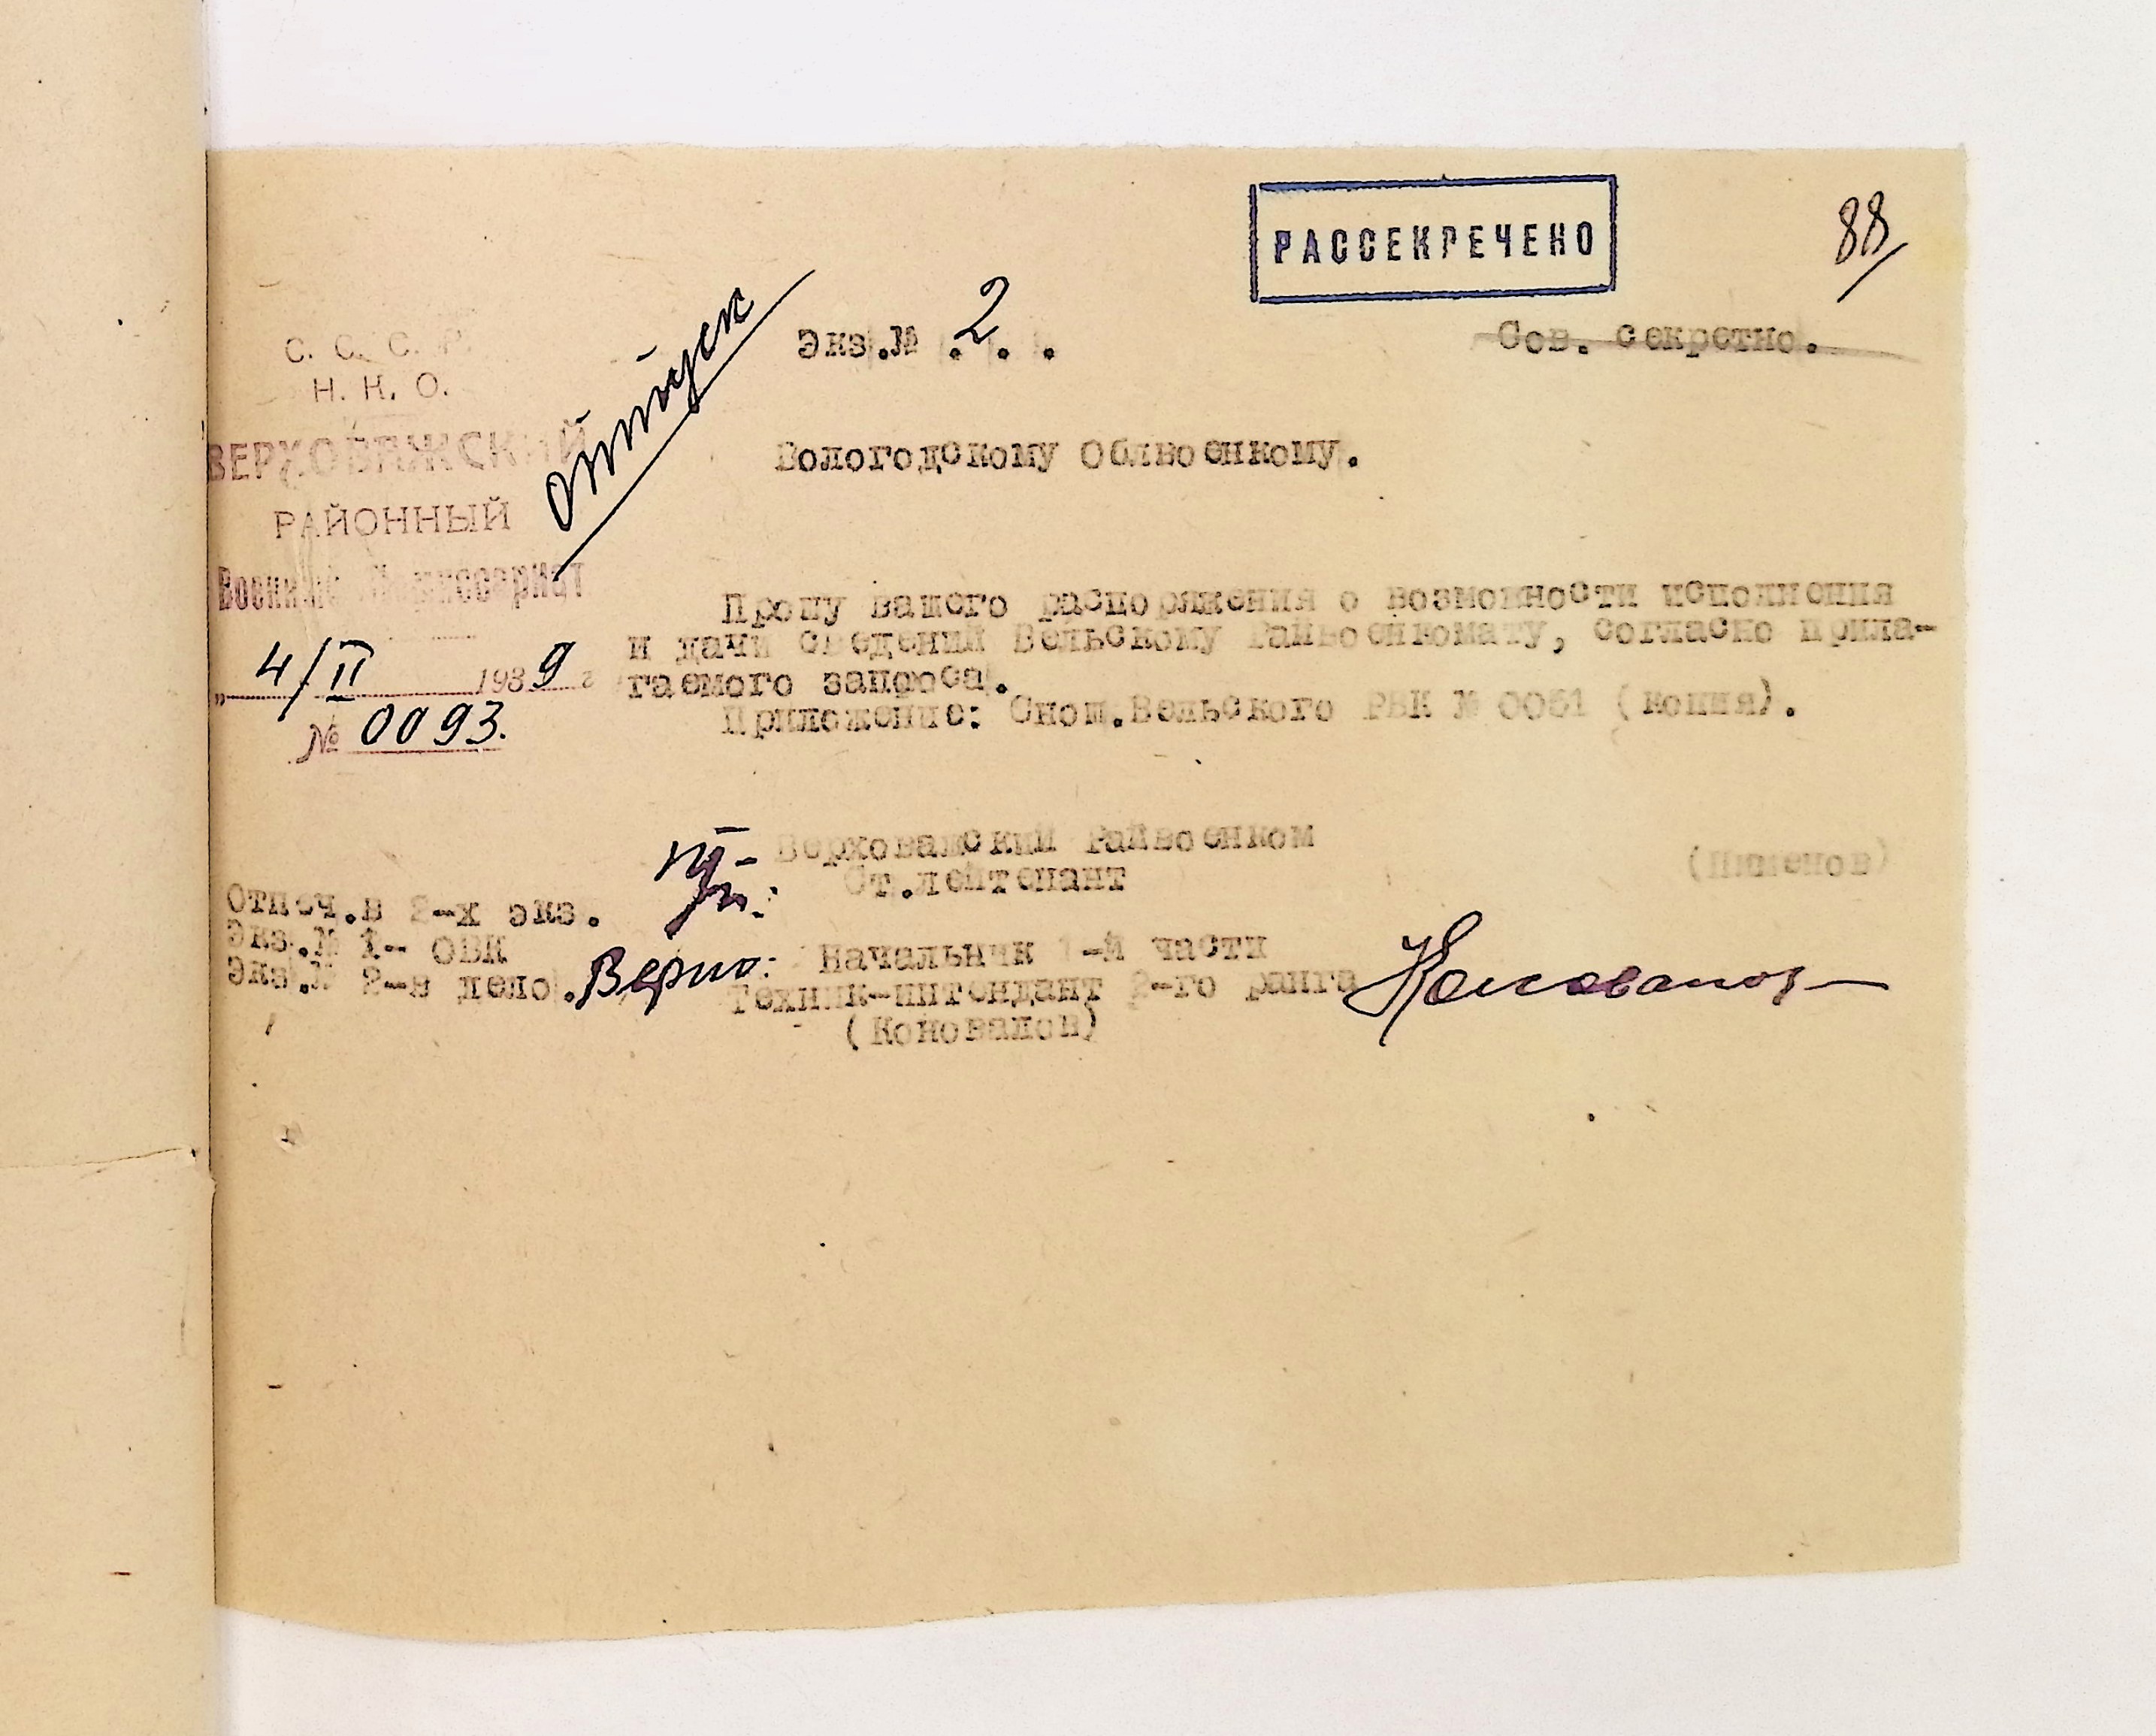 РАССЕКРЕЧЕНО
88
С. С. С. Р.
Н. К. О.
ВЕРХОВАЖСКИЙ
РАЙОННЫЙ
Военный Комиссариат
4/II 1939 г
№ 0093.
отпуск
Экз.№ .2. .
Сов. секретно.
Вологодскому Облвоенкому.
Прошу вашего распоряжения о возможности исполнения
и дачи сведений Вельскому Райвоенкомату, согласно прила-
гаемого запроса.
Приложение: Снош.Вельского РВК № 0051 (копия).
Верховажский Райвоенком
Ст.лейтенант
(Пименов)
Отпеч.в 2-х экз.
Экз.№ 1- ОВК
Экз.№ 2-в дело.
Верно:
Начальник 1-й части
Техник-интендант 2-го ранга
(Коновалов)
Коновалов